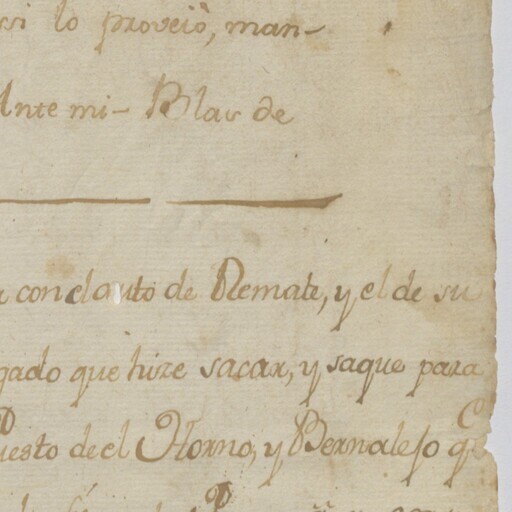 si lo proveió, man-
Ante mi - Blas de
con el auto de Remate, y el de su
gado que hize sacar, y saque para
uesto de el Horno, y Bernalejo q